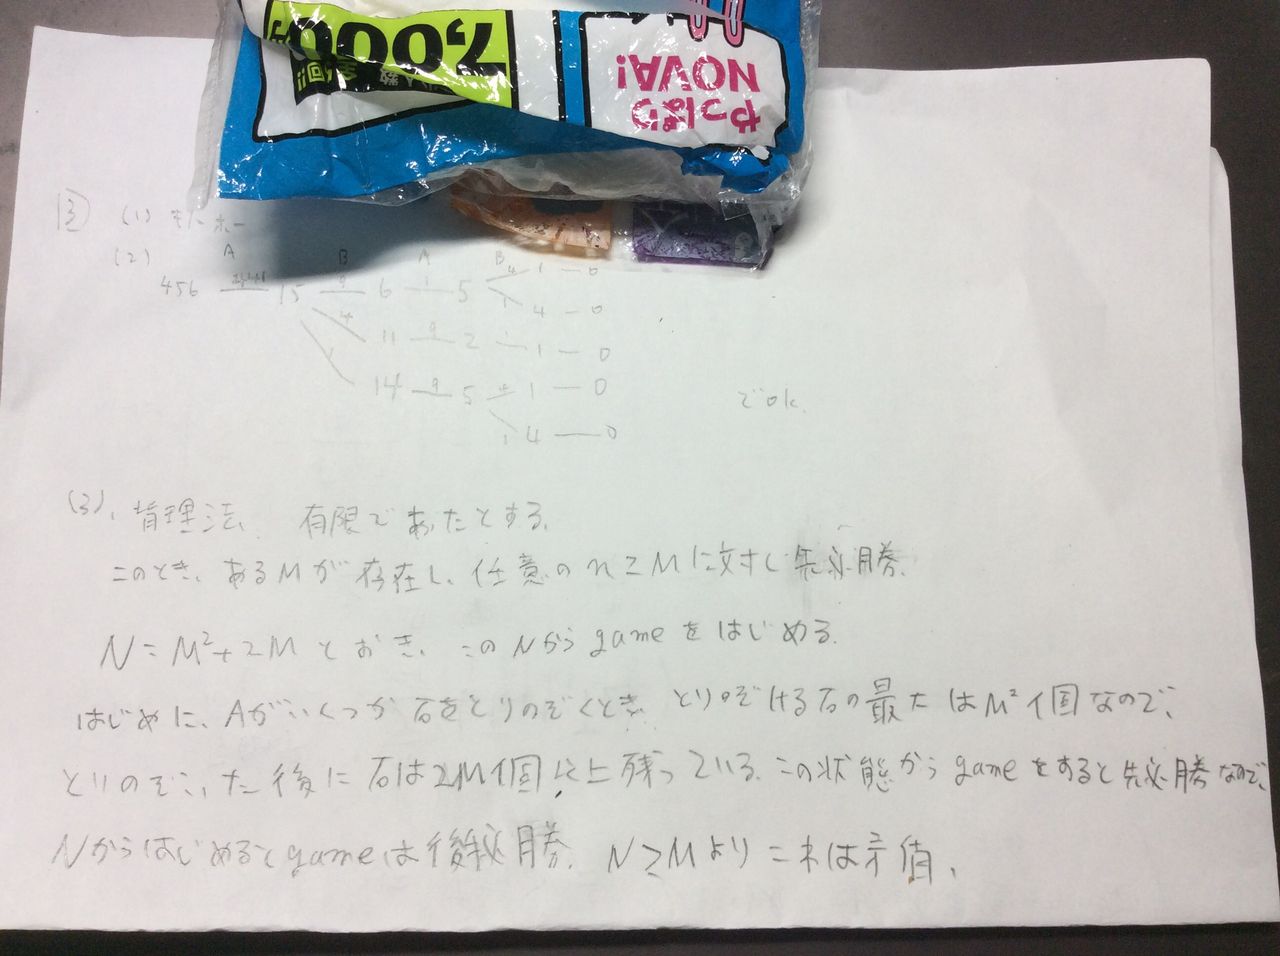 7,000
やっぱり
NOVA!
13 (1)
(2) A B A B
456 15 9 6 1 5 4 1 — 0
1 4 — 0
4 11 9 2 1 — 0
1 14 9 5 4 1 — 0
1 4 — 0
でok.
(3). 背理法、 有限であったとする、
このとき、あるMが存在し、任意のn≧Mに対し先必勝、
N=M²+2Mとおき、このNからgameをはじめる、
はじめに、Aがいくつか石をとりのぞくとき、とりのぞける石の最大はM²個なので、
とりのぞいた後に石は2M個以上残っている、この状態からgameをすると先必勝なので、
Nからはじめるとgameは後必勝、N≧Mよりこれは矛盾、